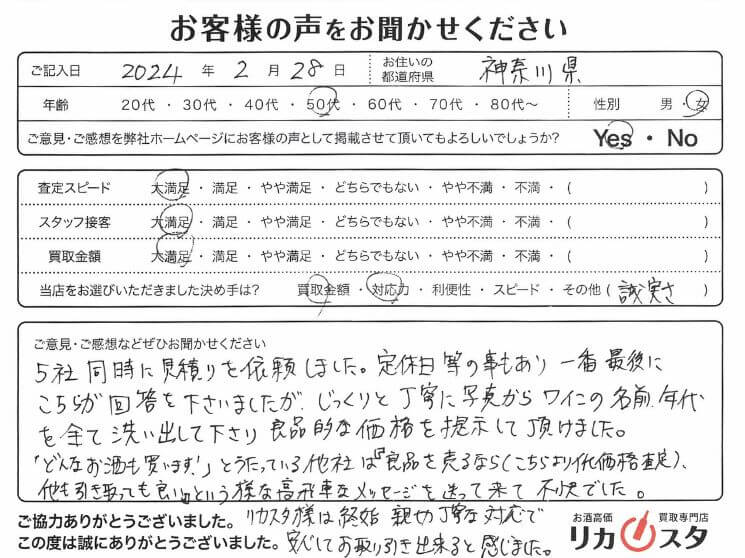 お客様の声をお聞かせください
ご記入日 2024 年 2 月 28 日 お住いの都道府県 神奈川県
年齢 20代 ・ 30代 ・ 40代 ・ 50代 ・ 60代 ・ 70代 ・ 80代〜 性別 男 ・ 女
ご意見・ご感想を弊社ホームページにお客様の声として掲載させて頂いてもよろしいでしょうか? Yes ・ No
査定スピード 大満足 ・ 満足 ・ やや満足 ・ どちらでもない ・ やや不満 ・ 不満 ・ ( )
スタッフ接客 大満足 ・ 満足 ・ やや満足 ・ どちらでもない ・ やや不満 ・ 不満 ・ ( )
買取金額 大満足 ・ 満足 ・ やや満足 ・ どちらでもない ・ やや不満 ・ 不満 ・ ( )
当店をお選びいただきました決め手は? 買取金額 ・ 対応力 ・ 利便性 ・ スピード ・ その他 ( 誠実さ )
ご意見・ご感想などぜひお聞かせください
5社同時に見積りを依頼しました。定休日等の事もあり一番最後に
こちらが回答を下さいましたが、じっくりと丁寧に写真からワインの名前、年代
を全て洗い出して下さり良品的な価格を提示して頂けました。
「どんなお酒も買います!」とうたっている他社は「良品を売るなら(こちらより低価格査定)、
他も引き取っても良い」という様な高飛車なメッセージを送って来て不快でした。
リカスタ様は終始親切丁寧な対応で
安心してお取り引き出来ると感じました。
ご協力ありがとうございました。
この度は誠にありがとうございました。
お酒高価 買取専門店
リカスタ